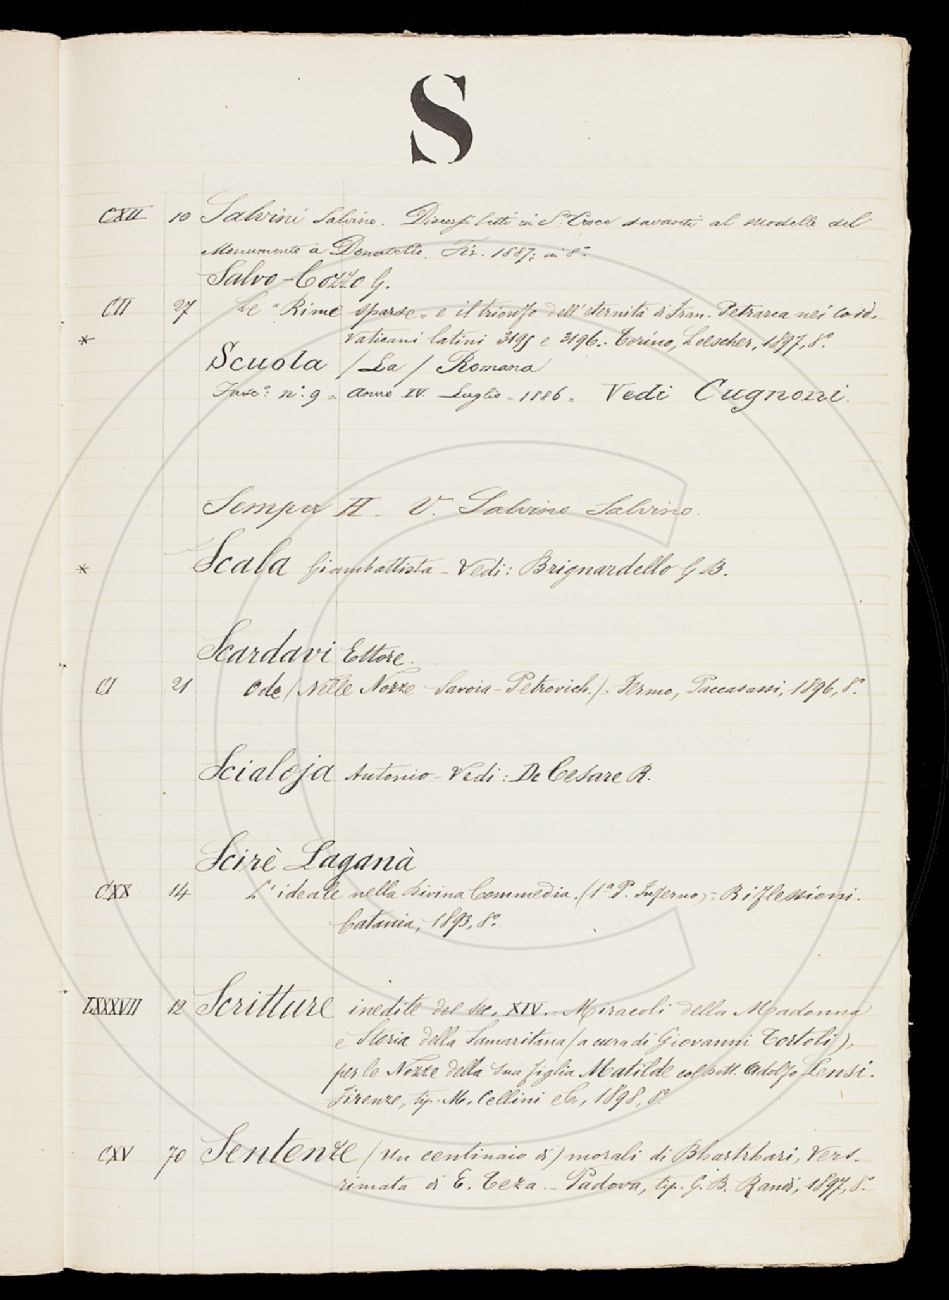 S
CXII 10 Salvini Salvino. Discorsi letti in S.ta Croce davanti al modello del
Monumento a Donatello. Fir. 1887; in 8°
Salvo-Cozzo G.
CII 27 Le "Rime sparse" e il trionfo dell'eternità di Fran. Petrarca nei codd.
* vaticani latini 3195 e 3196.- Torino, Loescher, 1897, 8°.
Scuola (La) Romana
Fasc°: n°. 9 - anno IV. Luglio - 1886 - Vedi Cugnoni.
Semper H - V. Salvino Salvino.
* Scala Giambattista - Vedi: Brignardello G B.
Scardavi Ettore.
CI 21 Ode (Nelle Nozze Savoia-Petrovich.) - Fermo, Paccasassi, 1896, 8°.
Scialoja Antonio - Vedi: De Cesare R.
Scirè Laganà
CXX 14 L'ideale nella Divina Commedia. (1ª P. Inferno) - Riflessioni.
Catania, 1893, 8°.
LXXXVII 12 Scritture inedite del Sec. XIV. - Miracoli della Madonna
e Storia della Samaritana (a cura di Giovanni Tortoli),
per le Nozze della sua figlia Matilde col Dott. Adolfo Lensi.
Firenze, tip. M. Cellini e C., 1898, 8°.
CXV 70 Sentenze (Un centinaio di) morali di Bhartrhari, Vers.
rimata di E. Teza. - Padova, tip. G. B. Randi, 1897, 8°.